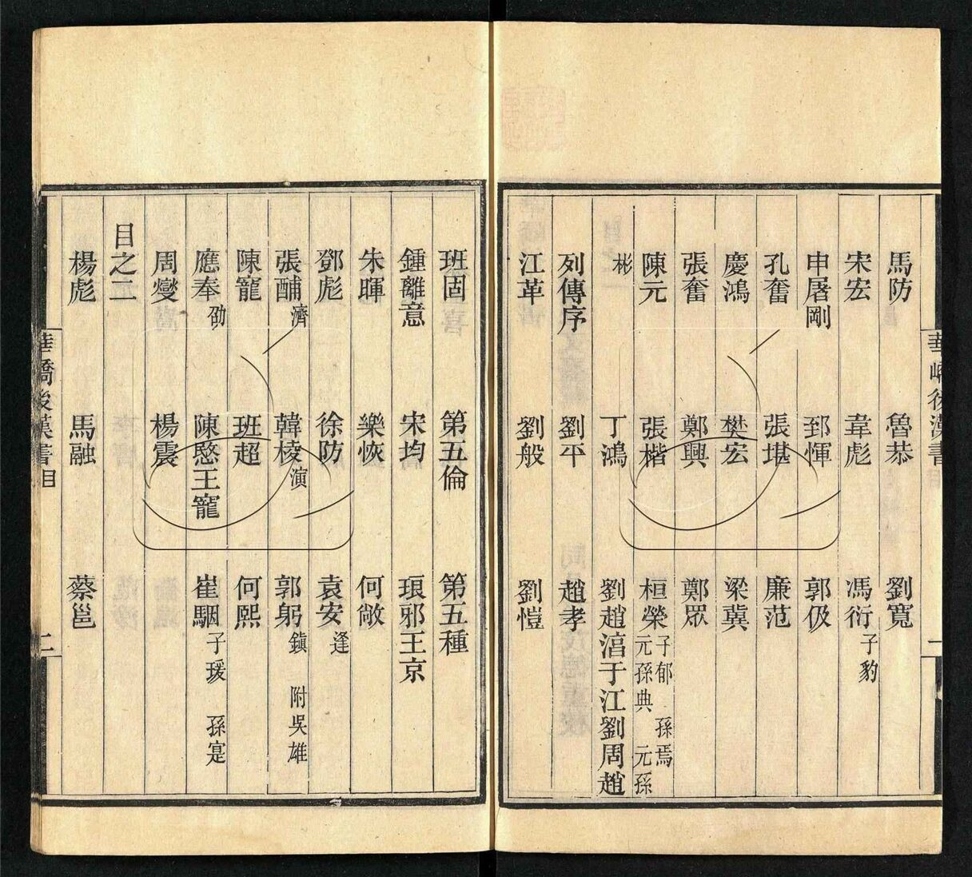 馬防 魯恭 劉寬
宋宏 韋彪 馮衍 子豹
申屠剛 郅惲 郭伋
孔奮 張堪 廉范
慶鴻 樊宏 梁冀
張奮 鄭興 鄭眾
陳元 張楷 桓榮 子郁 孫焉 元孫典 元孫
彬 丁鴻 劉趙淳于江劉周趙
列傳序 劉平 趙孝
江革 劉般 劉愷
華嶠後漢書目
班固 第五倫 第五種
鍾離意 宋均 琅邪王京
朱暉 樂恢 何敞
鄧彪 徐防 袁安 逢
張酺 濟 韓棱 演 郭躬 鎮 附吳雄
陳寵 班超 何熙
應奉 劭 陳愍王寵 崔駰 子瑗 孫寔
周燮 楊震
目之二
楊彪 馬融 蔡邕
華嶠後漢書目 二